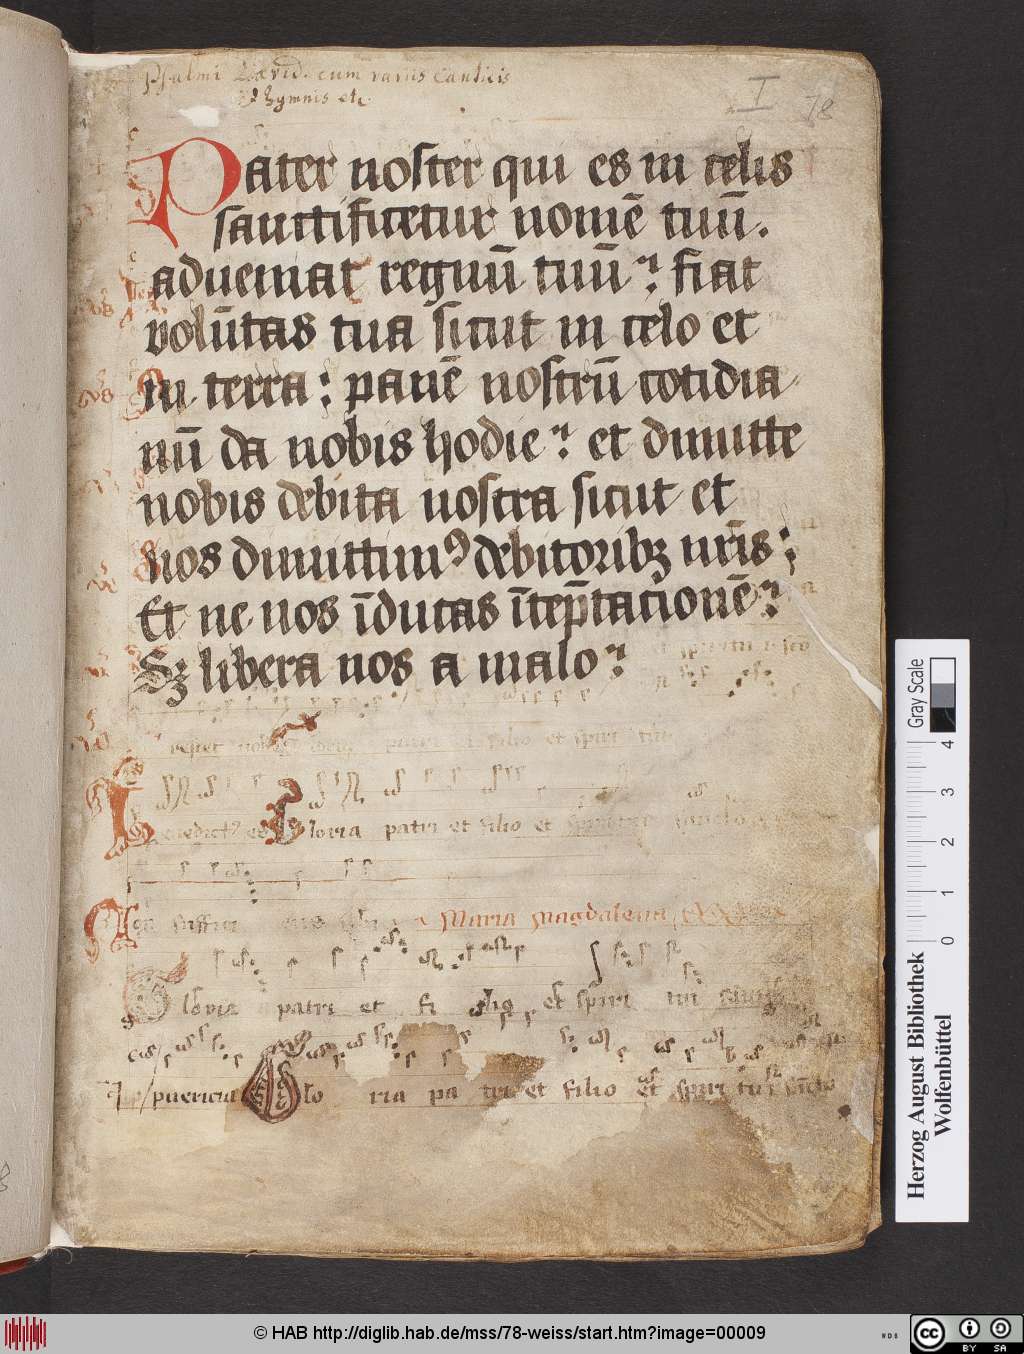 Psalmi David. cum variis Canticis
& hymnis etc.
I 78
Pater noster qui es in celis
sanctificetur nomē tuū.
adueniat regnū tuū? fiat
volūtas tua sicut in celo et
in terra: panē nostrū cotidia
nū da nobis hodie? et dimitte
nobis debita nostra sicut et
nos dimittimꝰ debitoribꝫ nr̄is;
Et ne nos īducas ītēptacionē?
Sꝫ libera nos a malo?
et spiritui sco
patri et filio et spiri tui
Benedictꝰ es Gloria patri et filio et spiritui sancto
Maria magdalena
Gloria patri et fi lio et spiri tui
puericia Glo ria pa tri et filio et spiri tui sancto
Gray Scale
0 1 2 3 4
Herzog August Bibliothek
Wolfenbüttel
© HAB http://diglib.hab.de/mss/78-weiss/start.htm?image=00009
cc BY SA